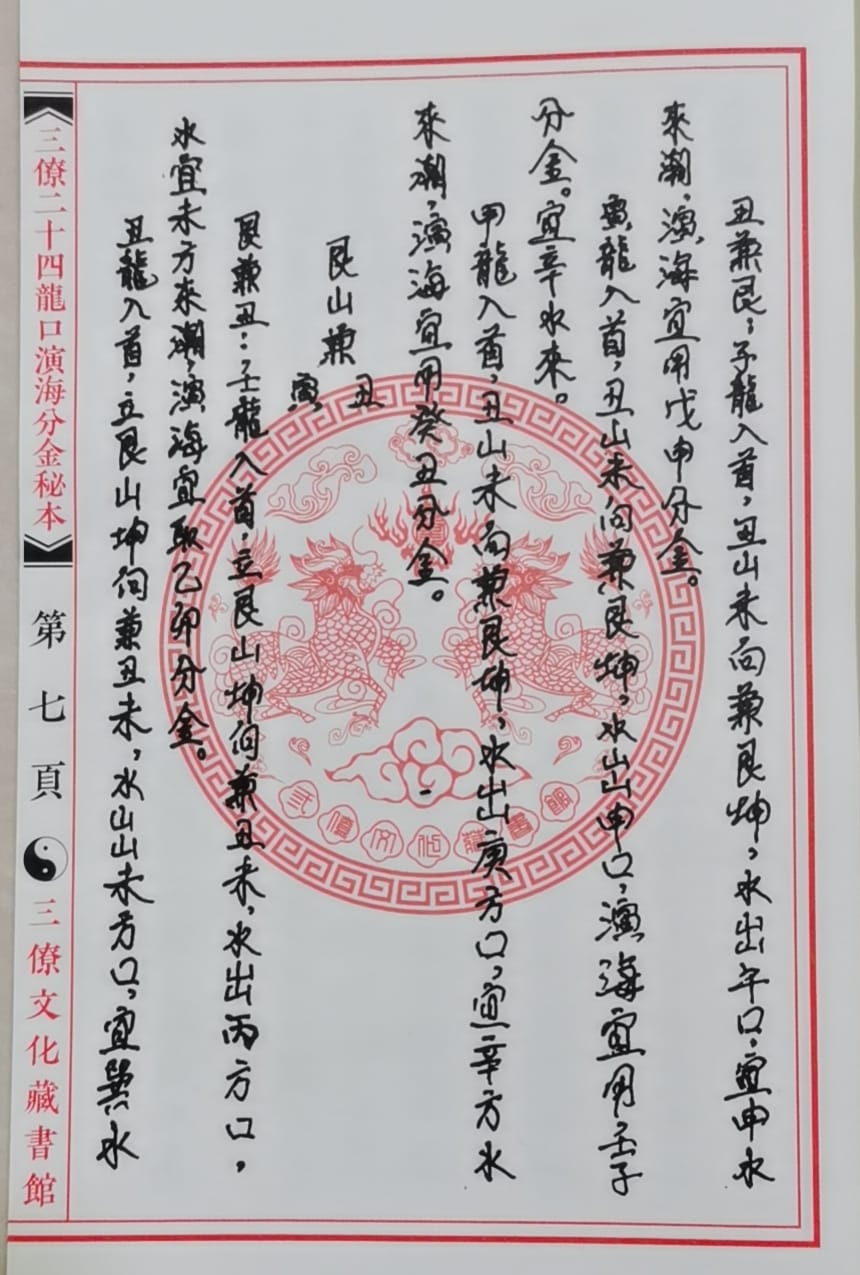 丑兼艮：子龍入首，丑山未向兼艮坤，水出午口，宜申水
來潮，演海宜用戊申分金。
寅龍入首，丑山未向兼艮坤，水出申口，演海宜用壬子
分金。宜辛水來。
甲龍入首，丑山未向兼艮坤，水出庚方口，宜辛方水
來潮，演海宜用癸丑分金。
艮山兼丑寅
艮兼丑：壬龍入首，立艮山坤向兼丑未，水出丙方口，
水宜未方來潮，演海宜取乙卯分金。
丑龍入首，立艮山坤向兼丑未，水出未方口，宜巽水
三僚二十四龍口演海分金秘本
第七頁
三僚文化藏書館
三僚文化藏書館